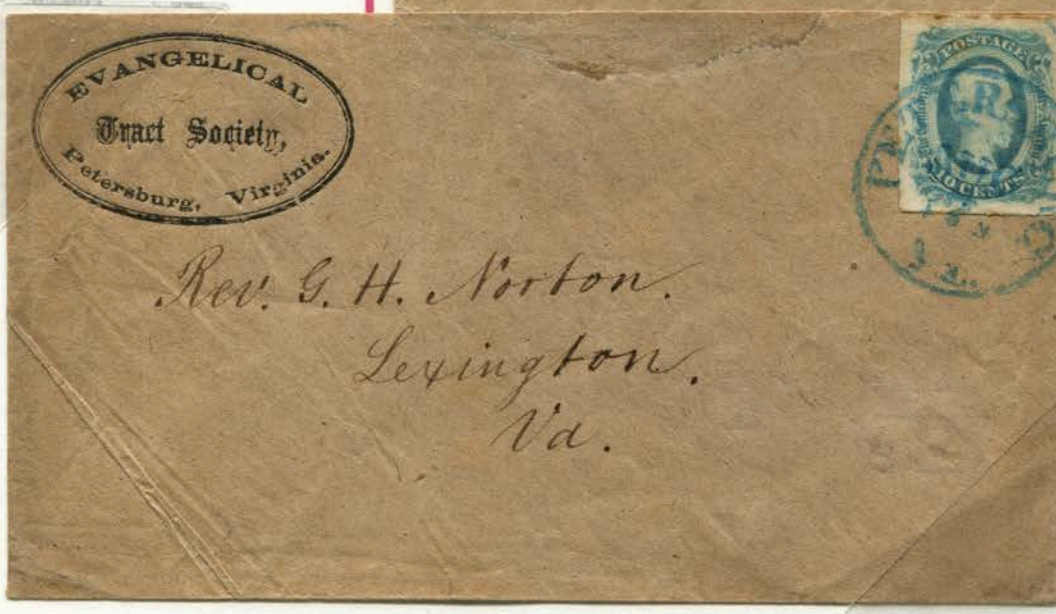 EVANGELICAL
Tract Society,
Petersburg, Virginia.
POSTAGE
10 CENTS
Rev. G. H. Norton.
Lexington.
Va.